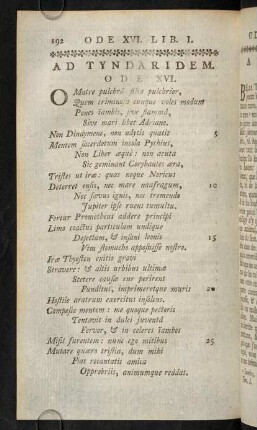 192 ODE XVI. LIB. I.
AD TYNDARIDEM.
ODE XVI.
O Matre pulchrâ filia pulchrior,
Quem criminosis cunque voles modum
Pones iambis, sive flammâ,
Sive mari libet Adriano.
Non Dindymene, non adytis quatit 5
Mentem sacerdotum incola Pythius,
Non Liber æquè: non acuta
Sic geminant Corybantes æra,
Tristes ut iræ: quas neque Noricus
Deterret ensis, nec mare naufragum, 10
Nec sævus ignis, nec tremendo
Jupiter ipse ruens tumultu.
Fertur Prometheus addere principi
Limo coactus particulam undique
Desectam, & insani leonis 15
Vim stomacho apposuisse nostro.
Iræ Thyesten exitio gravi
Stravere: & altis urbibus ultimæ
Stetere causæ cur perirent
Funditus, imprimeretque muris 20
Hostile aratrum exercitus insolens.
Compesce mentem: me quoque pectoris
Tentavit in dulci juventâ
Fervor, & in celeres iambos
Misit furentem: nunc ego mitibus 25
Mutare quæro tristia, dum mihi
Fias recantatis amica
Opprobriis, animumque reddas.